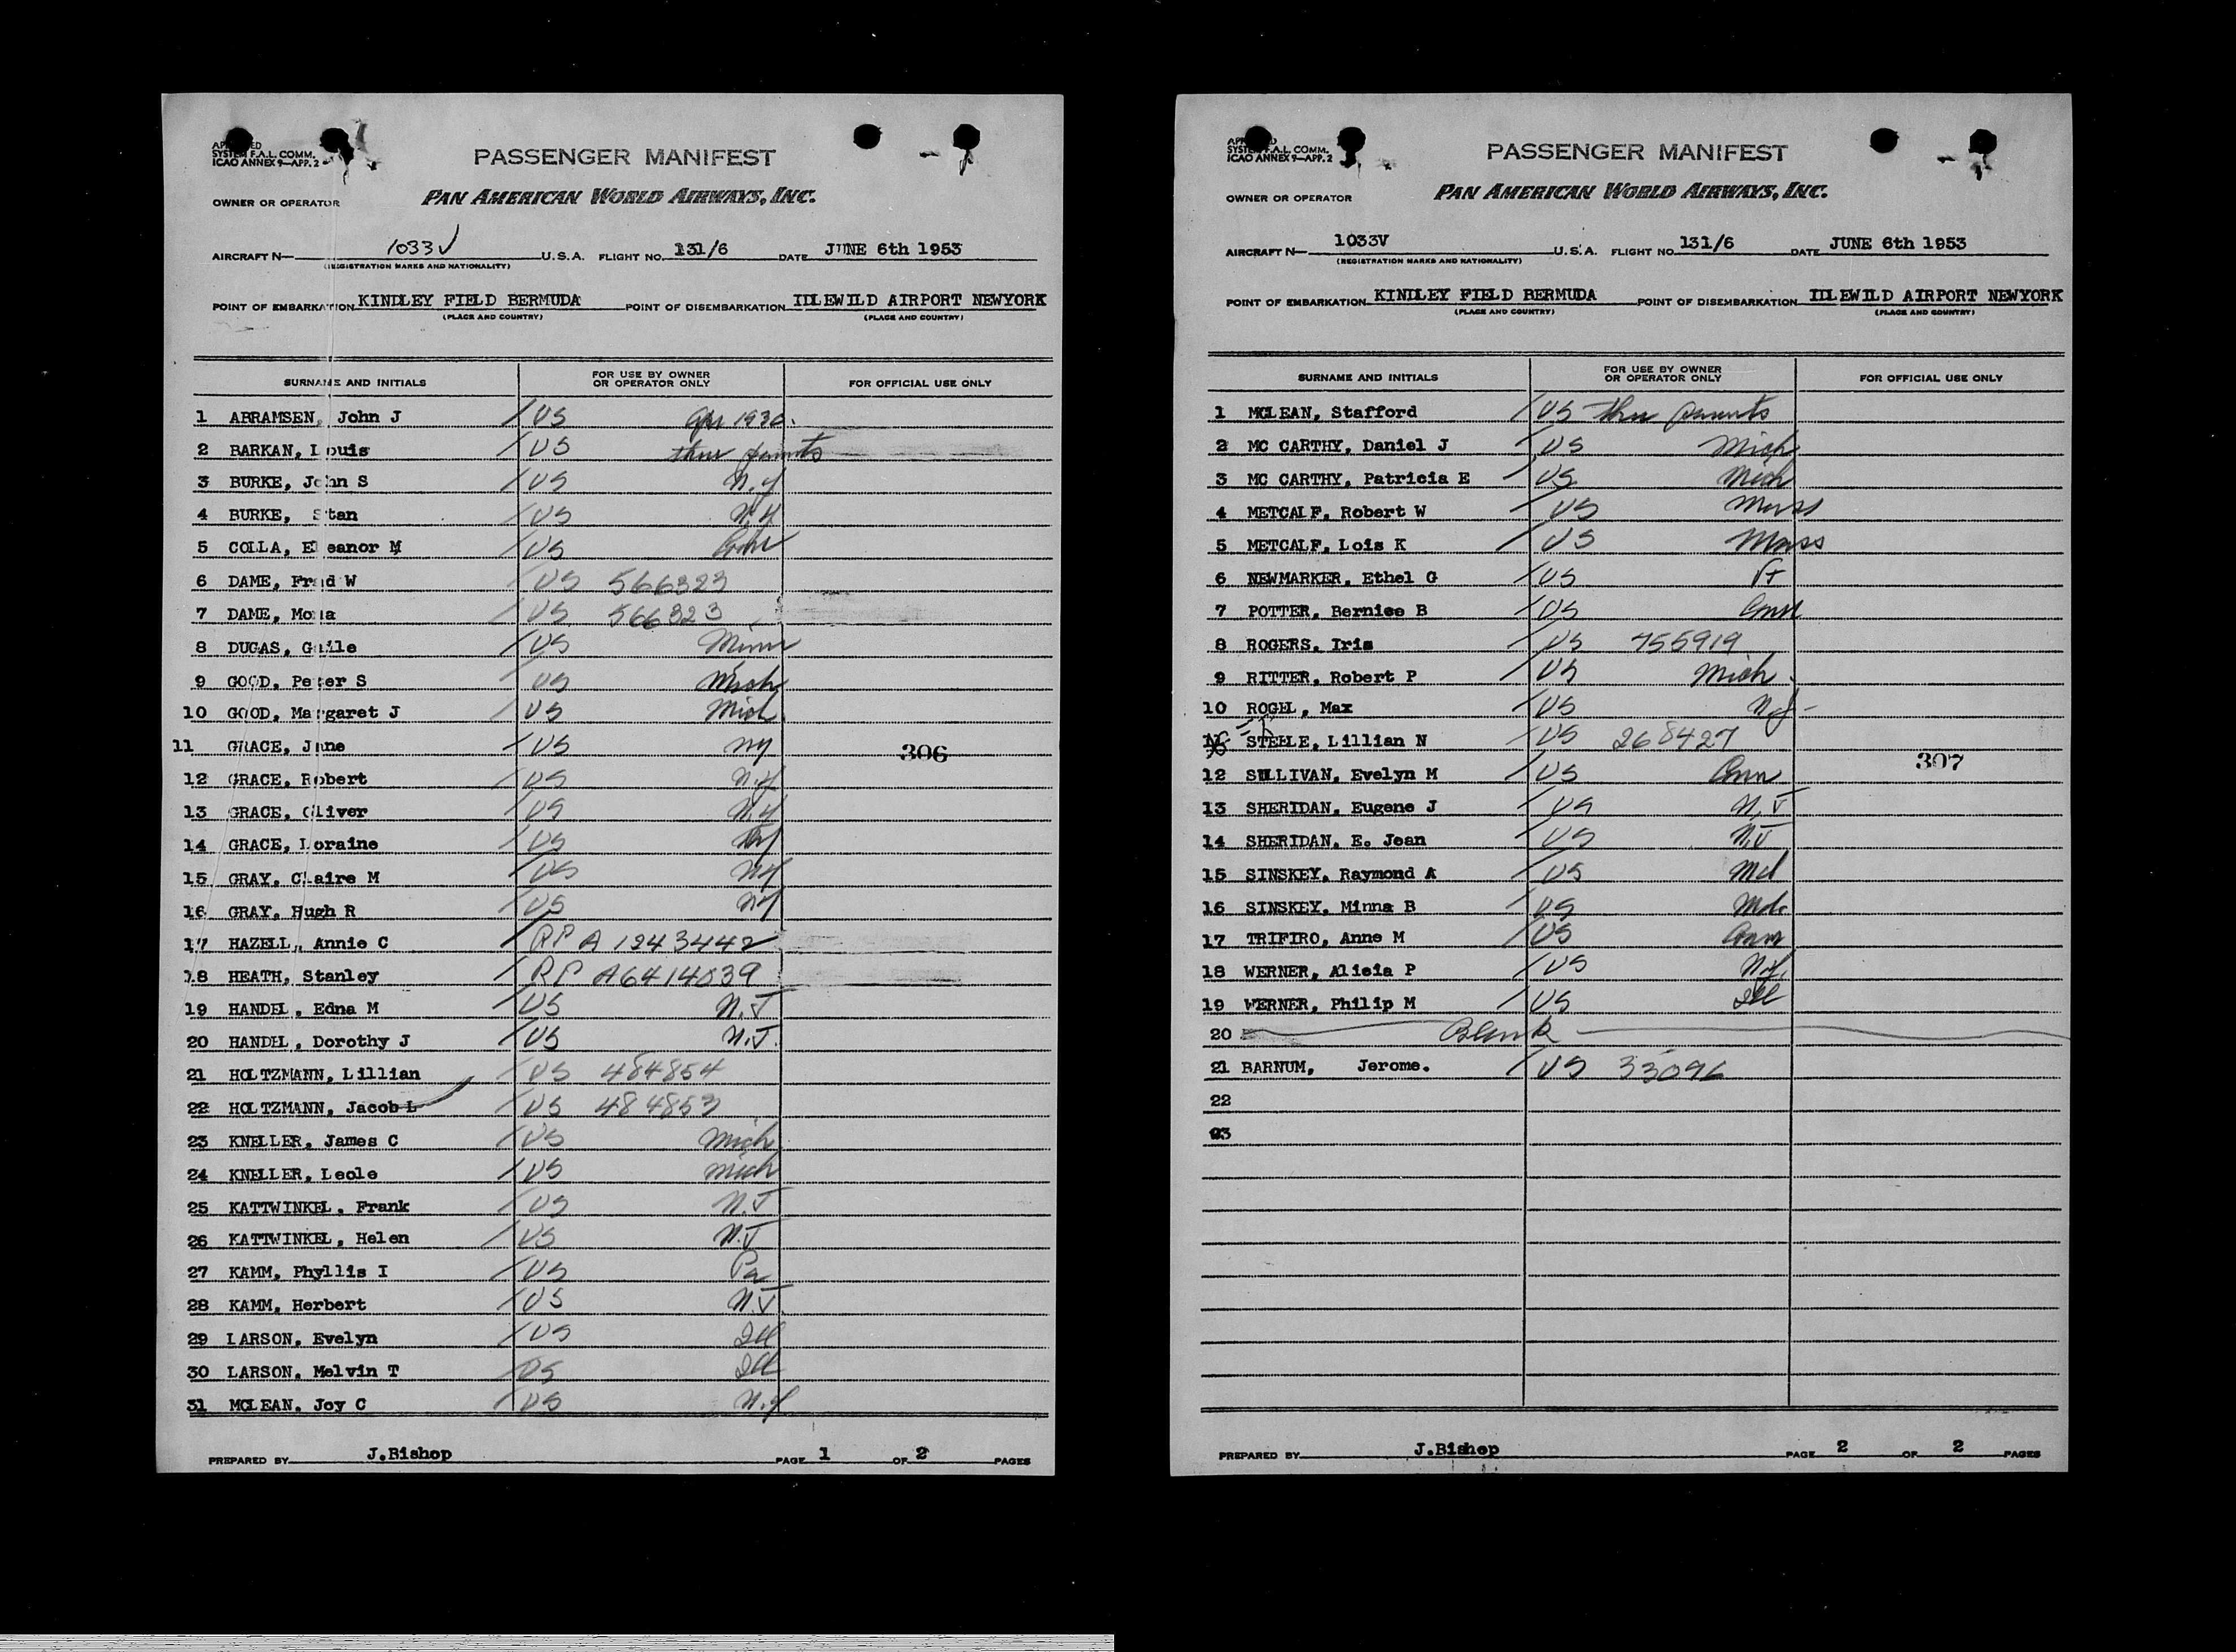 APPROVED
SYSTEM F.A.L. COMM.
ICAO ANNEX 9—APP. 2
PASSENGER MANIFEST
OWNER OR OPERATOR PAN AMERICAN WORLD AIRWAYS, INC.
AIRCRAFT N— 1033V U.S.A. FLIGHT NO. 131/6 DATE JUNE 6th 1953
(REGISTRATION MARKS AND NATIONALITY)
POINT OF EMBARKATION KINDLEY FIELD BERMUDA POINT OF DISEMBARKATION IDLEWILD AIRPORT NEWYORK
(PLACE AND COUNTRY) (PLACE AND COUNTRY)
SURNAME AND INITIALS FOR USE BY OWNER OR OPERATOR ONLY FOR OFFICIAL USE ONLY
1 ABRAMSEN, John J / US 1936.
2 BARKAN, Louis / US thru parents
3 BURKE, John S / US N.Y
4 BURKE, Stan / US N.Y
5 COLLA, Eleanor M / US Conn
6 DAME, Fred W / US 566323
7 DAME, Mona / US 566323
8 DUGAS, Gaile / US Minn
9 GOOD, Peter S US Mich
10 GOOD, Margaret J / US Mich
11 GRACE, Jane / US NY
306
12 GRACE, Robert / US N.Y
13 GRACE, Oliver / US N.Y
14 GRACE, Loraine / US NY
15 GRAY, Claire M / US NY
16 GRAY, Hugh R / US NY
17 HAZELL, Annie C / RP A 1243442
18 HEATH, Stanley / RP A6414039
19 HANDEL, Edna M / US N.J
20 HANDEL, Dorothy J / US N.J.
21 HOLTZMANN, Lillian / US 484854
22 HOLTZMANN, Jacob L / US 484853
23 KNELLER, James C / US Mich
24 KNELLER, Leole / US Mich
25 KATTWINKEL, Frank / US N.J
26 KATTWINKEL, Helen / US N.J
27 KAMM, Phyllis I / US Pa
28 KAMM, Herbert / US N.J.
29 LARSON, Evelyn / US Ill
30 LARSON, Melvin T / US Ill
31 MCLEAN, Joy C / US N.Y
PREPARED BY J.Bishop PAGE 1 OF 2 PAGES
APPROVED
SYSTEM F.A.L. COMM.
ICAO ANNEX 9—APP. 2
PASSENGER MANIFEST
OWNER OR OPERATOR PAN AMERICAN WORLD AIRWAYS, INC.
AIRCRAFT N— 1033V U.S.A. FLIGHT NO. 131/6 DATE JUNE 6th 1953
(REGISTRATION MARKS AND NATIONALITY)
POINT OF EMBARKATION KINDLEY FIELD BERMUDA POINT OF DISEMBARKATION IDLEWILD AIRPORT NEWYORK
(PLACE AND COUNTRY) (PLACE AND COUNTRY)
SURNAME AND INITIALS FOR USE BY OWNER OR OPERATOR ONLY FOR OFFICIAL USE ONLY
1 MCLEAN, Stafford / US thru parents
2 MC CARTHY, Daniel J / US Mich
3 MC CARTHY, Patricia E / US Mich
4 METCALF, Robert W / US Mass
5 METCALF, Lois K / US Mass
6 NEWMARKER, Ethel G / US Vt
7 POTTER, Bernice B / US Conn
8 ROGERS, Iris / US 755919
9 RITTER, Robert P / US Mich
10 ROGEL, Max / US N.J
STEELE, Lillian N / US 268427
307
12 SULLIVAN, Evelyn M / US Conn
13 SHERIDAN, Eugene J / US N.J
14 SHERIDAN, E. Jean / US N.J
15 SINSKEY, Raymond A / US Md
16 SINSKEY, Minna B / US Md.
17 TRIFIRO, Anne M / US Conn
18 WERNER, Alicia P / US N.Y.
19 WERNER, Philip M / US Ill
20 Blank
21 BARNUM, Jerome. / US 33096
22
23
PREPARED BY J.Bishop PAGE 2 OF 2 PAGES